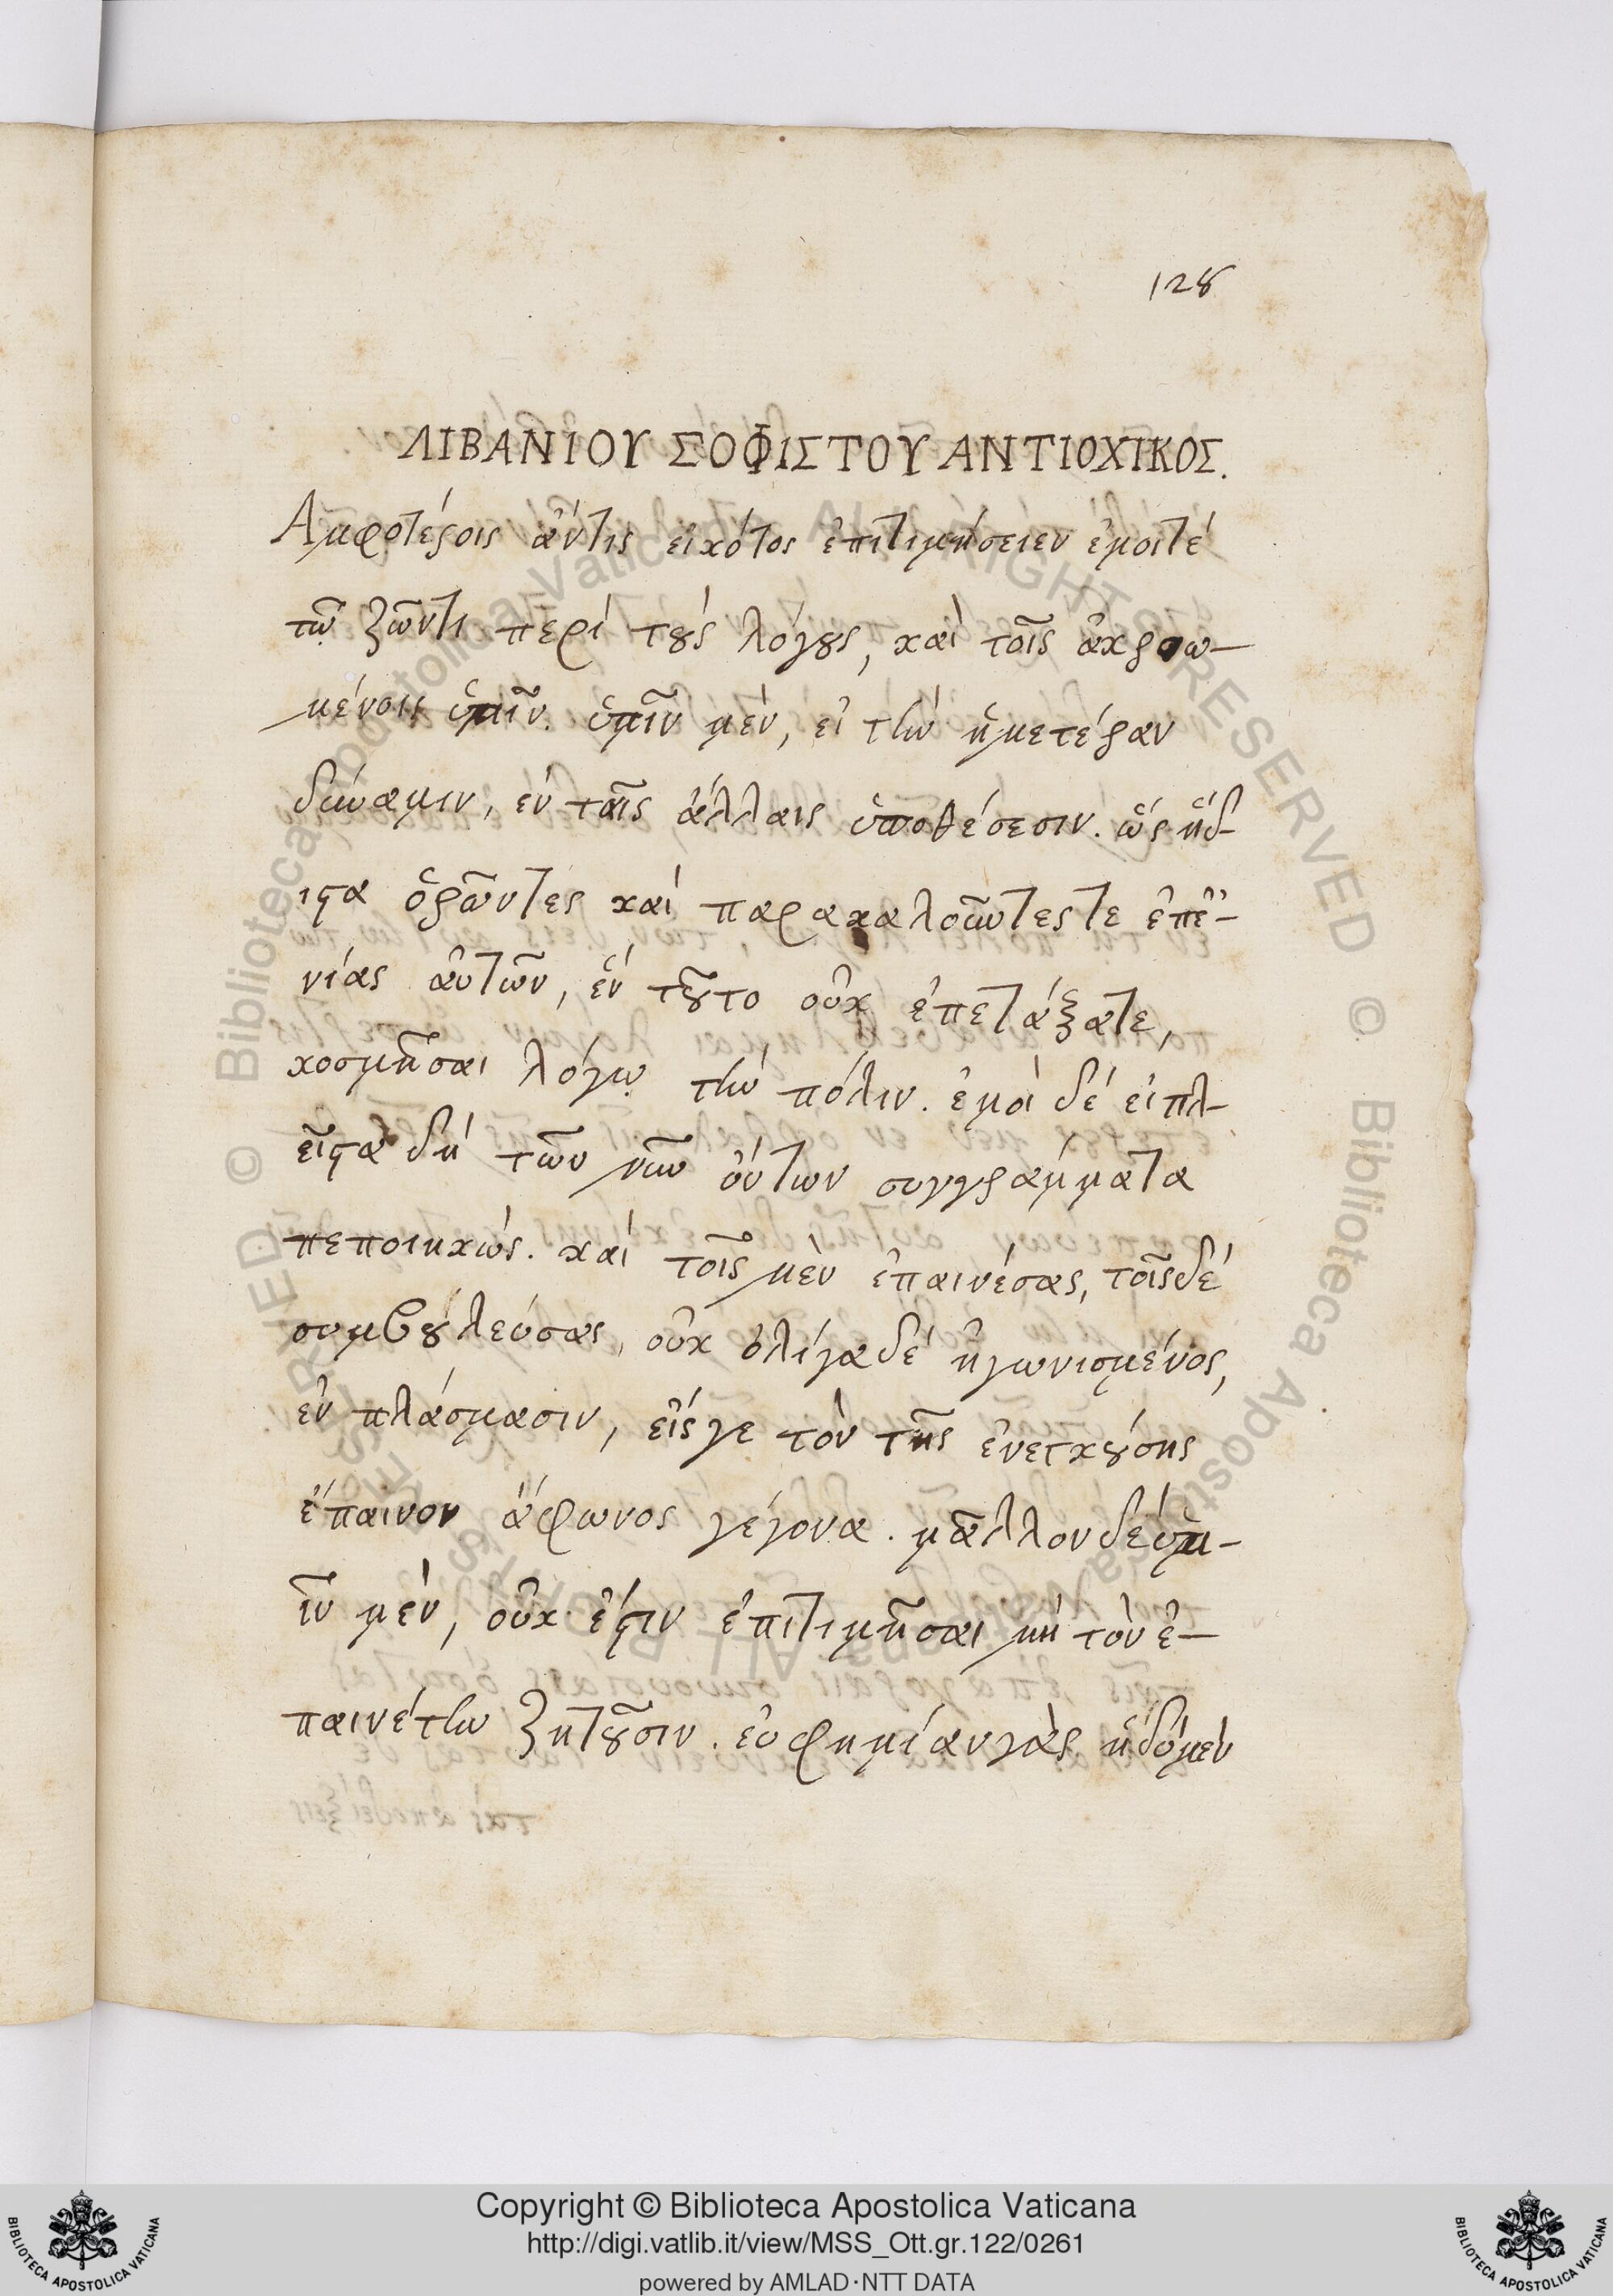 128
ΛΙΒΑΝΙΟΥ ΣΟΦΙΣΤΟΥ ΑΝΤΙΟΧΙΚΟΣ.
Αμφοτέροις ἄντις εἰκότος ἐπιτιμήσειεν ἐμοιτέ
τῷ ζῶντι περί τȣ́ς λόγȣς, καὶ τοῖς ἀκροω-
μένοις ὑμῖν. ὑμῖν μὲν, εἰ τὴν ἡμετέραν
δύναμιν, ἐν ταῖς ἄλλαις ὑποθέσεσιν. ὥς ἥδ-
ιϛα ὁρῶντες καί παρακαλοῦντεςτε ἐπἐ-
νίας αὐτῶν, ἕν τȣ͂το οὐκ ἐπετάξατε,
κοσμῆσαι λόγῳ τὴν πόλιν. ἐμοὶ δέ εἰ πλ-
εῖϛα δή τῶν νῦν ὄντων συγγράμματα
πεποιηκώς. καί τοῖς μὲν ἐπαινέσας, τοῖςδέ
συμβȣλεύσας, οὐκ ὀλίγα δέ ἠγωνισμένος,
ἐν πλάσμασιν, εἴς γε τὸν τῆς ἐνεγκȣ́σης
ἔπαινον ἄφωνος γέγονα. μᾶλλον δέ ὑμ-
ῖν μὲν, οὐκ ἔϛιν ἐπιτιμῆσαι μή τὸν ἐ-
παινέτην ζητȣ͂σιν. εὐφημίαν γὰρ
Copyright © Biblioteca Apostolica Vaticana
http://digi.vatlib.it/view/MSS_Ott.gr.122/0261
powered by AMLAD·NTT DATA
BIBLIOTECA APOSTOLICA VATICANA
BIBLIOTECA APOSTOLICA VATICANA